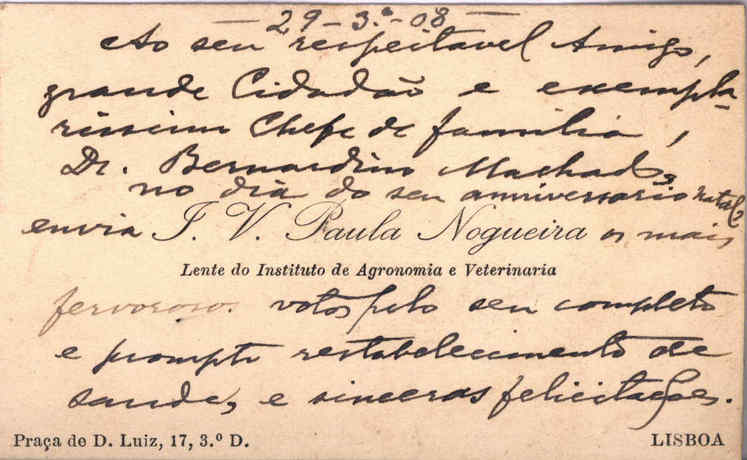 29-3º-08
Ao seu respeitavel Amigo,
grande Cidadão e exempla-
rissimo Chefe de familia,
Dr. Bernardino Machado,
no dia do seu anniversario natal,
envia J. V. Paula Nogueira os mais
Lente do Instituto de Agronomia e Veterinaria
fervorosos votos pelo seu completo
e prompto restabelecimento de
saude, e sinceras felicitações.
Praça de D. Luiz, 17, 3.º D.
LISBOA